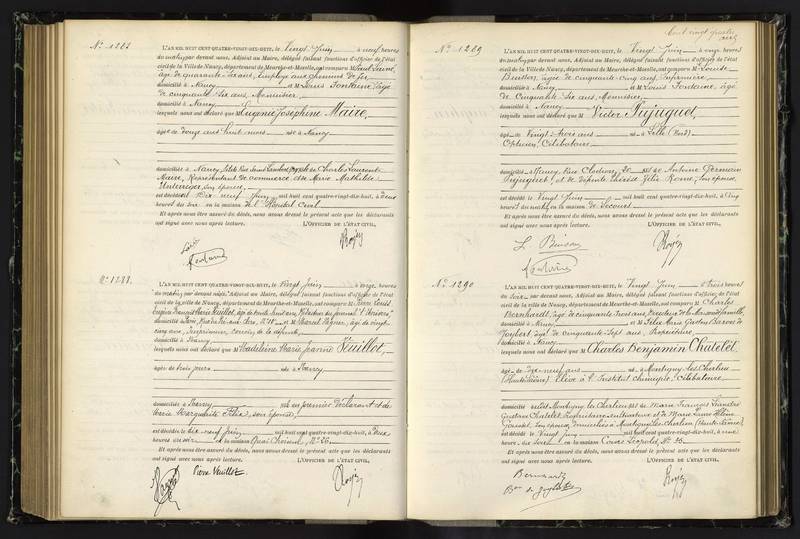 N° 1287
L'AN MIL HUIT CENT QUATRE-VINGT-DIX-HUIT, le Vingt Juin à neuf heures
du matin, par devant nous, Adjoint au Maire, délégué faisant fonctions d'officier de l'état
civil de la Ville de Nancy, département de Meurthe-et-Moselle, ont comparu M
âge de quarante-six ans, Employé aux chemins de fer
domicilié à Nancy et M Louis Fontaine, âgé
de cinquante six ans, Menuisier,
domicilié à Nancy
lesquels nous ont déclaré que Eugénie Joséphine Maire,
âgée de Douze ans huit mois née à Nancy
domiciliée à Nancy, fille de Charles Laurent
Maire, Représentant de commerce et de Marie Mathilde
son épouse,
est décédée le Dix neuf Juin mil huit cent quatre-vingt-dix-huit, à deux
heures du soir en la maison de l'Hôpital Civil
Et après nous être assuré du décès, nous avons dressé le présent acte que les déclarants
ont signé avec nous après lecture. L'OFFICIER DE L'ÉTAT CIVIL,
N° 1288.
L'AN MIL HUIT CENT QUATRE-VINGT-DIX-HUIT, le Vingt Juin à onze heures
du matin, par devant nous, Adjoint au Maire, délégué faisant fonctions d'officier de l'état
civil de la ville de Nancy, département de Meurthe-et-Moselle, ont comparu M Pierre Louis
François Marie Veuillot, âgé de trente huit ans, Rédacteur du journal "l'Univers",
domicilié à Paris, et M Marcel Vagner, âgé de vingt
cinq ans, Imprimeur, cousin de la défunte,
domicilié à Nancy
lesquels nous ont déclaré que Madeleine Marie Jeanne Veuillot,
âgée de trois jours née à Nancy
domiciliée à Nancy fille du premier déclarant et de
Marie Marguerite son épouse,
est décédée le dix-neuf Juin mil huit cent quatre-vingt-dix-huit, à deux
heures du soir en la maison Quai Choiseul, N° 26
Et après nous être assuré du décès, nous avons dressé le présent acte que les déclarants
ont signé avec nous après lecture. L'OFFICIER DE L'ÉTAT CIVIL,
Pierre Veuillot.
Cent vingt quatre
N° 1289
L'AN MIL HUIT CENT QUATRE-VINGT-DIX-HUIT, le Vingt Juin à onze heures
du matin, par devant nous, Adjoint au Maire, délégué faisant fonctions d'officier de l'état
civil de la Ville de Nancy, département de Meurthe-et-Moselle, ont comparu M Louise
âgée de cinquante cinq ans, Infirmière,
domiciliée à Nancy et M Louis Fontaine, âgé
de Cinquante six ans, Menuisier,
domicilié à Nancy
lesquels nous ont déclaré que M Victor Pujuguet,
âgé de Vingt-trois ans né à Lille (Nord)
Opticien, Célibataire
domicilié à Nancy, Rue Clodion, 20 fils de Antoine Germain
Pujuguet, et de Zélie Rome, son épouse,
est décédé le Vingt Juin mil huit cent quatre-vingt-dix-huit, à cinq
heures du matin, en la maison de Secours
Et après nous être assuré du décès, nous avons dressé le présent acte que les déclarants
ont signé avec nous après lecture. L'OFFICIER DE L'ÉTAT CIVIL,
N° 1290
L'AN MIL HUIT CENT QUATRE-VINGT-DIX-HUIT, le Vingt Juin à trois heures
du Soir par devant nous, Adjoint au Maire, délégué faisant fonctions d'officier de l'état
civil de la ville de Nancy, département de Meurthe-et-Moselle, ont comparu M Charles
Bernhardt, âgé de cinquante trois ans, Directeur de la Maison
domicilié à Nancy, et M Félix Marie Gaston Baron de
âgé de cinquante-sept ans, Propriétaire,
domicilié à Nancy
lesquels nous ont déclaré que M Charles Benjamin Chatelet
âgé de Dix-neuf ans né à Montigny-les-Cherlieu
(Haute-Saône) Elève à l'Institut chimique, Célibataire
domicilié à Montigny-les-Cherlieu fils de Marie François Léandre
Gustave Chatelet, Propriétaire cultivateur et de Marie Laure Hélène
son épouse, domiciliés à Montigny-les-Cherlieu (Haute-Saône),
est décédé le Vingt Juin mil huit cent quatre-vingt-dix-huit, à une
heure du soir en la maison Cours Léopold, N° 36
Et après nous être assuré du décès, nous avons dressé le présent acte que les déclarants
ont signé avec nous après lecture. L'OFFICIER DE L'ÉTAT CIVIL,